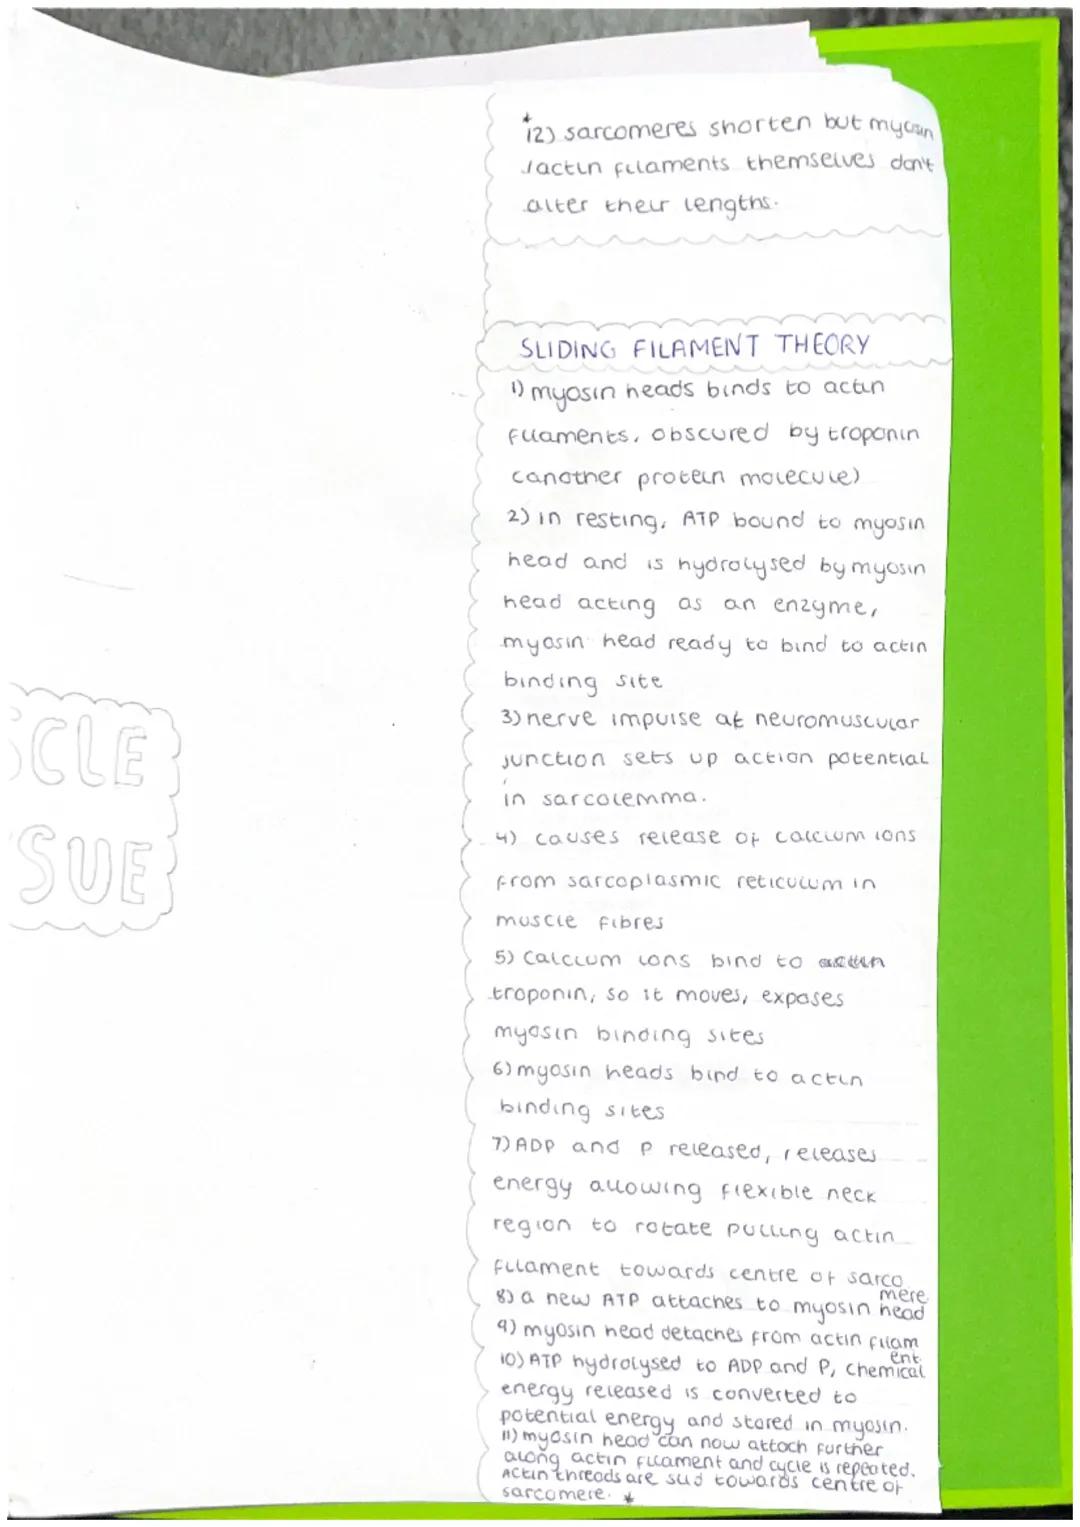 *12) sarcomeres shorten but myosin
/actin filaments themselves don't
alter their lengths.
SLIDING FILAMENT THEORY
1) myosin heads binds to actin
filaments, obscured by troponin
(another protein molecule)
2) in resting, ATP bound to myosin
head and is hydrolysed by myosin
head acting as an enzyme,
myosin head ready to bind to actin
binding site
3) nerve impulse at neuromuscular
junction sets up action potential
in sarcolemma.
4) causes release of calcium ions
from sarcoplasmic reticulum in
muscle fibres
5) Calcium ions bind to actin
troponin, so it moves, exposes
myosin binding sites
6) myosin heads bind to actin
binding sites
7) ADP and P released, releases
energy allowing flexible neck
region to rotate pulling actin
filament towards centre of sarco
mere
8) a new ATP attaches to myosin head
9) myosin head detaches from actin filam
ent
10) ATP hydrolysed to ADP and P, chemical
energy released is converted to
potential energy and stored in myosin.
11) myosin head can now attach further
along actin filament and cycle is repeated.
Actin threads are slid towards centre of
sarcomere. *
SCLE
SUE